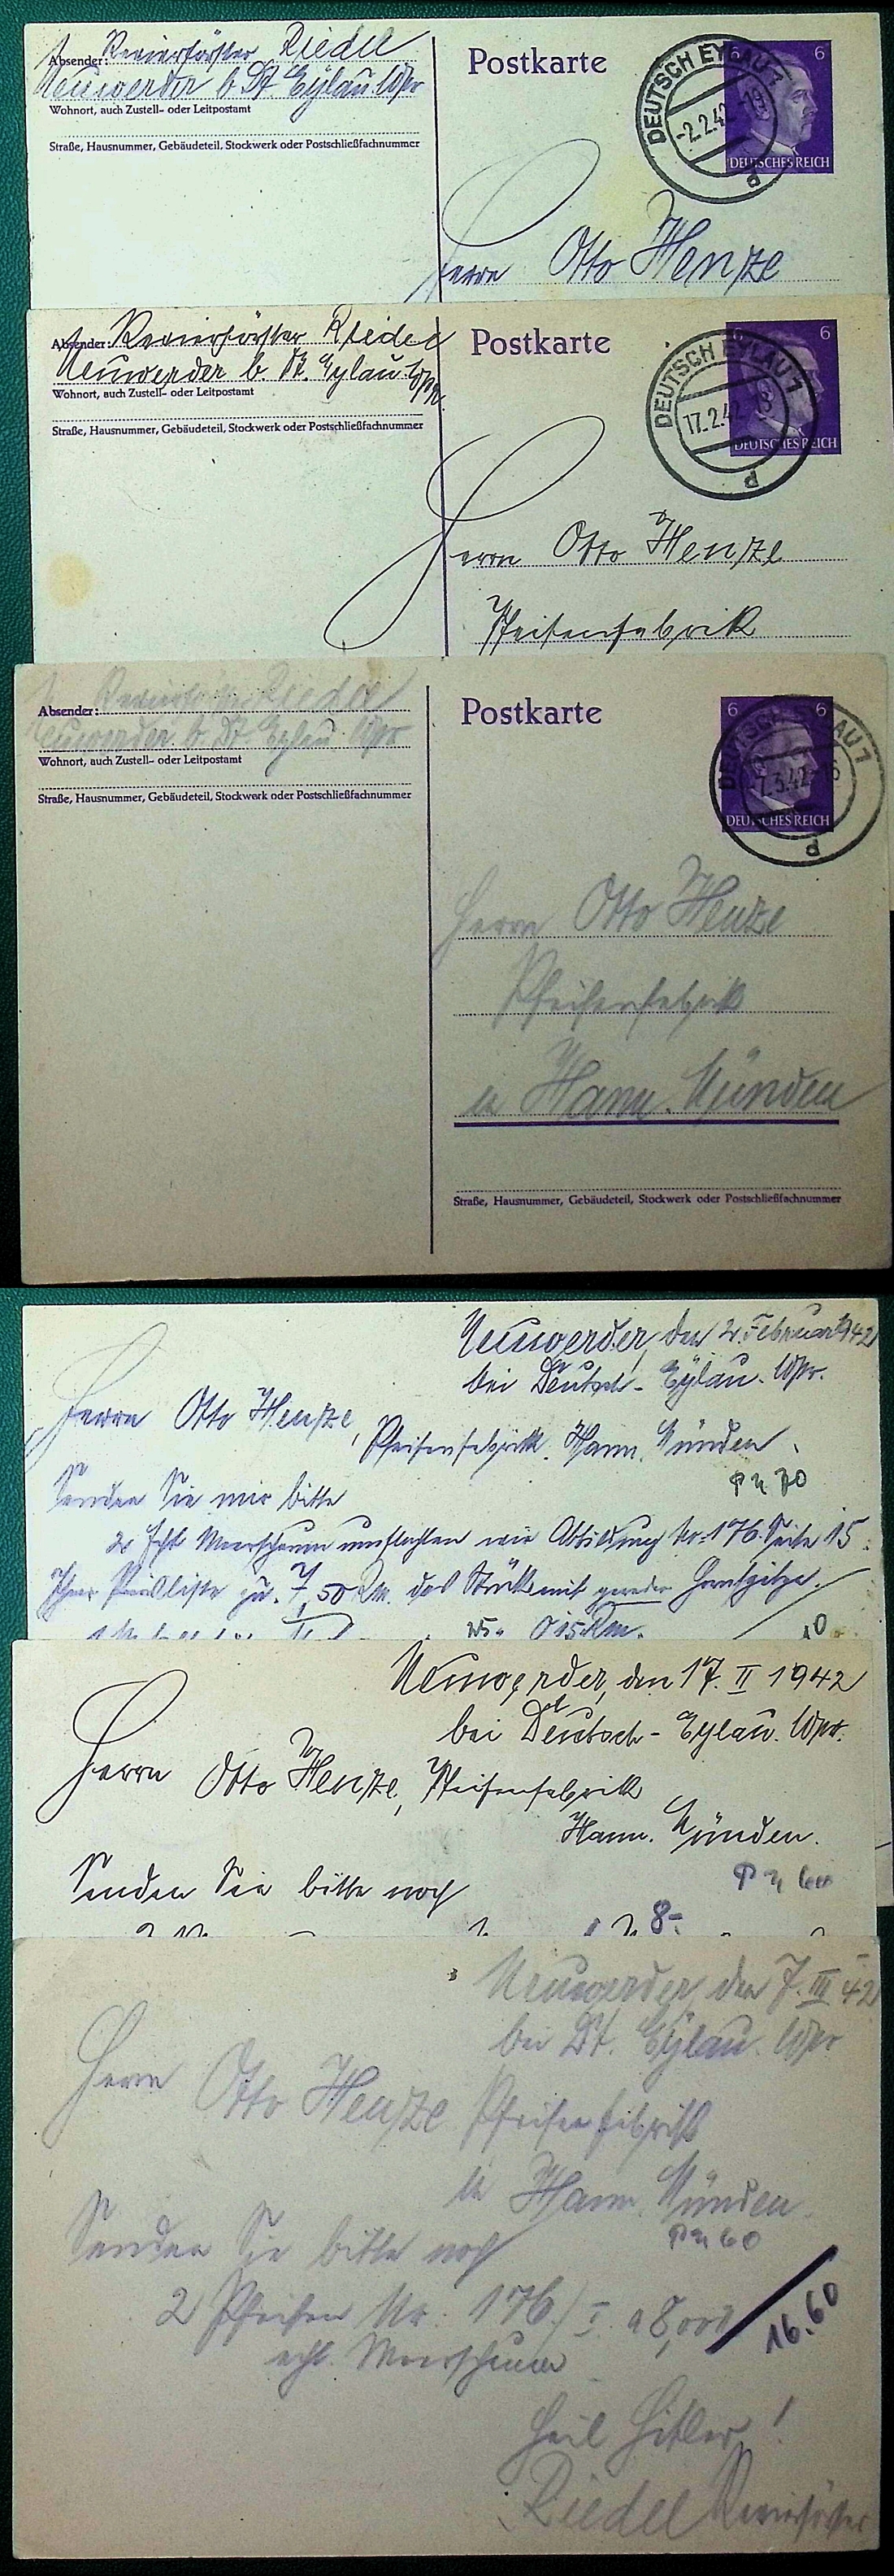 Absender: Revierförster Riedel
Neuwerder b Dt. Eylau. Wpr
Wohnort, auch Zustell- oder Leitpostamt
Straße, Hausnummer, Gebäudeteil, Stockwerk oder Postschließfachnummer
Postkarte
6 6
DEUTSCH EYLAU 1
-2.2.42
DEUTSCHES REICH
Herrn Otto Henze
Absender: Revierförster Riedel
Neuwerder b. Dt. Eylau Wpr.
Wohnort, auch Zustell- oder Leitpostamt
Straße, Hausnummer, Gebäudeteil, Stockwerk oder Postschließfachnummer
Postkarte
6
DEUTSCH EYLAU 1
17.2.42
DEUTSCHES REICH
Herrn Otto Henze
Pfeifenfabrik
Absender: Revierförster Riedel
Neuwerder b. Dt Eylau Wpr
Wohnort, auch Zustell- oder Leitpostamt
Straße, Hausnummer, Gebäudeteil, Stockwerk oder Postschließfachnummer
Postkarte
6 6
7.3.42
DEUTSCHES REICH
Herrn Otto Henze
Pfeifenfabrik
in Hann. Münden
Straße, Hausnummer, Gebäudeteil, Stockwerk oder Postschließfachnummer
Neuwerder, den 2. Februar 1942
bei Deutsch-Eylau. Wpr.
Herrn Otto Henze,
Pfeifenfabrik. Hann. Münden.
Senden Sie mir bitte
2 Echt Meerschaum umflochten wie Abbildung Nr. 176. Seite 15
Ihrer Preisliste zu. 7,50 Rm. das Stück mit gerader Hornspitze.
Neuwerder, den 17. II 1942
bei Deutsch-Eylau. Wpr.
Herrn Otto Henze, Pfeifenfabrik
Hann. Münden.
Senden Sie bitte noch
8-
Neuwerder den 7. III 42
bei Dt. Eylau. Wpr
Herrn Otto Henze Pfeifenfabrik
in Hann. Münden.
Senden Sie bitte noch
2 Pfeifen Nr. 176/I. a 8,00
16.60
echt. Meerschaum
Heil Hitler!
Riedel Revierförster